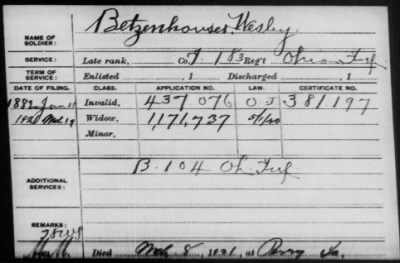 NAME OF SOLDIER: Betzenhouser, Wesley
SERVICE: Late rank, Co. F. 183 Reg't Ohio Inf
TERM OF SERVICE: Enlisted , 1 Discharged , 1
DATE OF FILING. CLASS. APPLICATION NO. LAW. CERTIFICATE NO.
1882 Jan 11 Invalid, 437 076 381,197
Widow, 1,171,737
Minor,
ADDITIONAL SERVICES: B. 104 Oh. Inf
REMARKS:
Died Mch 8, 1921, at Perry Ia.